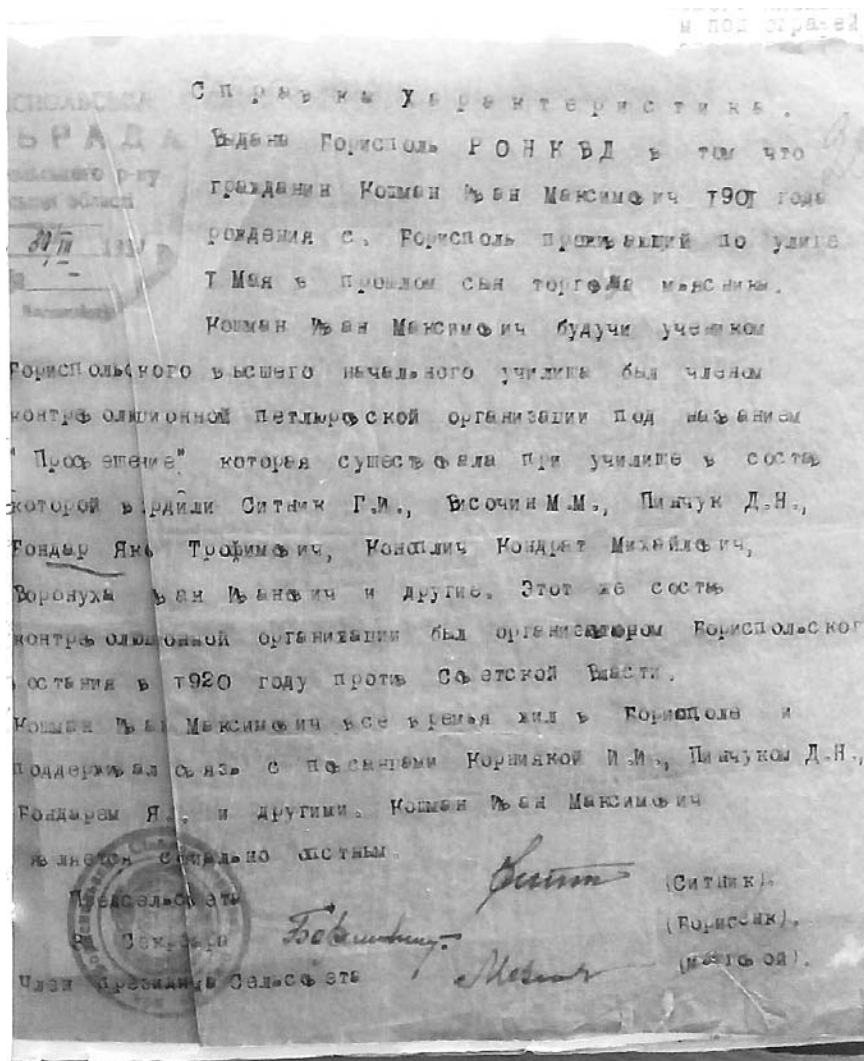 ы под стражей
Справка Характеристика.
БОРИСПОЛЬСЬКА
СІЛЬРАДА
Выдана Борисполь РОНКВД в том что
гражданин Кошман Иван Максимович 1901 года
рождения с. Борисполь проживающий по улице
1 Мая в прошлом сын торговца мясника.
Кошман Иван Максимович будучи учеником
Бориспольского высшего начального училища был членом
контрреволюционной петлюровской организации под названием
"Просвещение" которая существовала при училище в состав
которой входили Ситник Г.И., Височин М.М., Пинчук Д.Н.,
Бондар Яков Трофимович, Коноплич Кондрат Михайлович,
Воронуха Иван Иванович и другие. Этот же состав
контрреволюционной организации был организатором Бориспольског
востания в 1920 году против Советской Власти.
Кошман Иван Максимович все время жил в Борисполе и
поддерживал связь с повстанцами Корниякой И.И., Пинчуком Д.Н.,
Бондарем Я., и другими. Кошман Иван Максимович
является социально опстным.
Предсельсовета (Ситник).
Секретаря (Борисенк).
Член Президиума Сельсовета (мезговой).